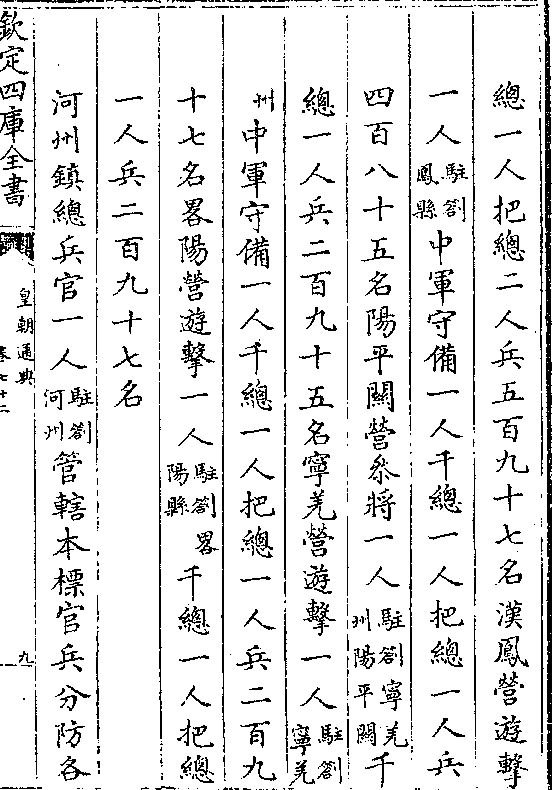 總一人把總二人兵五百九十七名漢鳳營遊擊
一人駐劄鳳縣中軍守備一人千總一人把總一人兵
四百八十五名陽平關營叅將一人駐劄寧羌州陽平關千
總一人兵二百九十五名寧羌營遊擊一人駐劄寧羌
州中軍守備一人千總一人把總一人兵二百九
十七名畧陽營遊擊一人駐劄畧陽縣千總一人把總
一人兵二百九十七名
河州鎮總兵官一人駐劄河州管轄本標官兵分防各
欽定四庫全書
皇朝通典
卷七十二
九